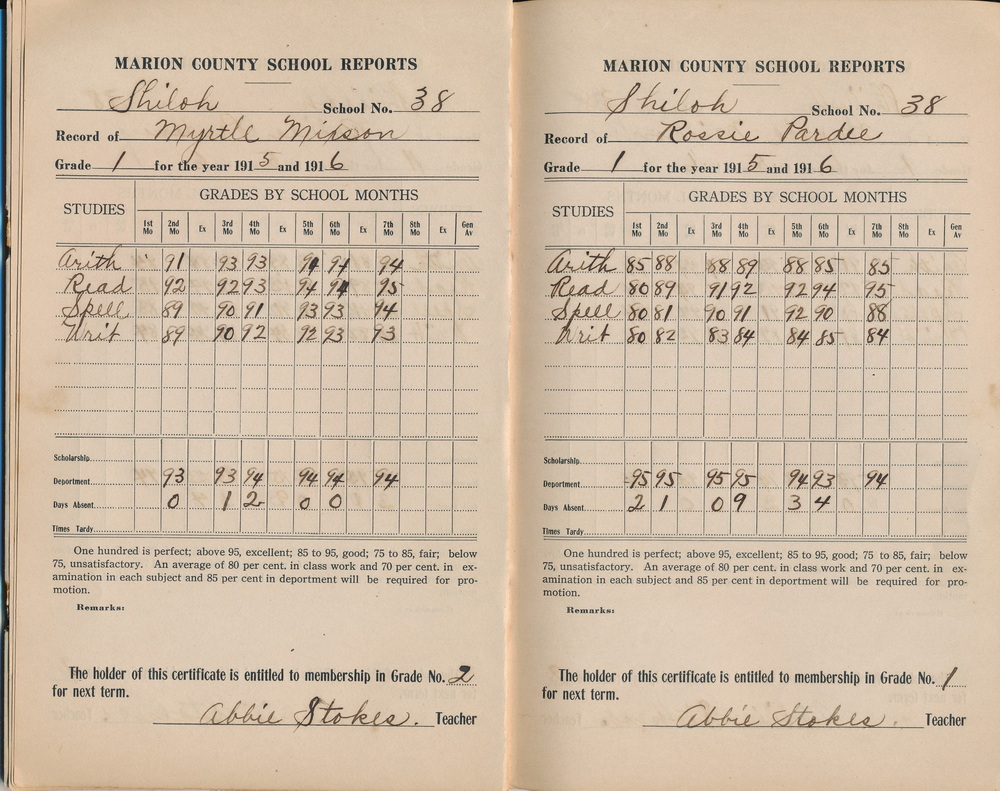 MARION COUNTY SCHOOL REPORTS
Shiloh School No. 38
Record of Myrtle Mixson
Grade 1 for the year 1915 and 1916
STUDIES GRADES BY SCHOOL MONTHS
1st Mo 2nd Mo Ex 3rd Mo 4th Mo Ex 5th Mo 6th Mo Ex 7th Mo 8th Mo Ex Gen Av
Arith 91 93 93 94 94 94
Read 92 92 93 94 94 95
Spell 89 90 91 93 93 94
Writ 89 90 92 92 93 93
Scholarship
Department 93 93 94 94 94 94
Days Absent 0 1 2 0 0
Times Tardy
One hundred is perfect; above 95, excellent; 85 to 95, good; 75 to 85, fair; below
75, unsatisfactory. An average of 80 per cent. in class work and 70 per cent. in ex-
amination in each subject and 85 per cent in deportment will be required for pro-
motion.
Remarks:
The holder of this certificate is entitled to membership in Grade No. 2
for next term.
Abbie Stokes. Teacher
MARION COUNTY SCHOOL REPORTS
Shiloh School No. 38
Record of Rossie Pardee
Grade 1 for the year 1915 and 1916
STUDIES GRADES BY SCHOOL MONTHS
1st Mo 2nd Mo Ex 3rd Mo 4th Mo Ex 5th Mo 6th Mo Ex 7th Mo 8th Mo Ex Gen Av
Arith 85 88 88 89 88 85 85
Read 80 89 91 92 92 94 95
Spell 80 81 90 91 92 90 88
Writ 80 82 83 84 84 85 84
Scholarship
Department 95 95 95 95 94 93 94
Days Absent 2 1 0 9 3 4
Times Tardy
One hundred is perfect; above 95, excellent; 85 to 95, good; 75 to 85, fair; below
75, unsatisfactory. An average of 80 per cent. in class work and 70 per cent. in ex-
amination in each subject and 85 per cent in deportment will be required for pro-
motion.
Remarks:
The holder of this certificate is entitled to membership in Grade No. 1
for next term.
Abbie Stokes. Teacher